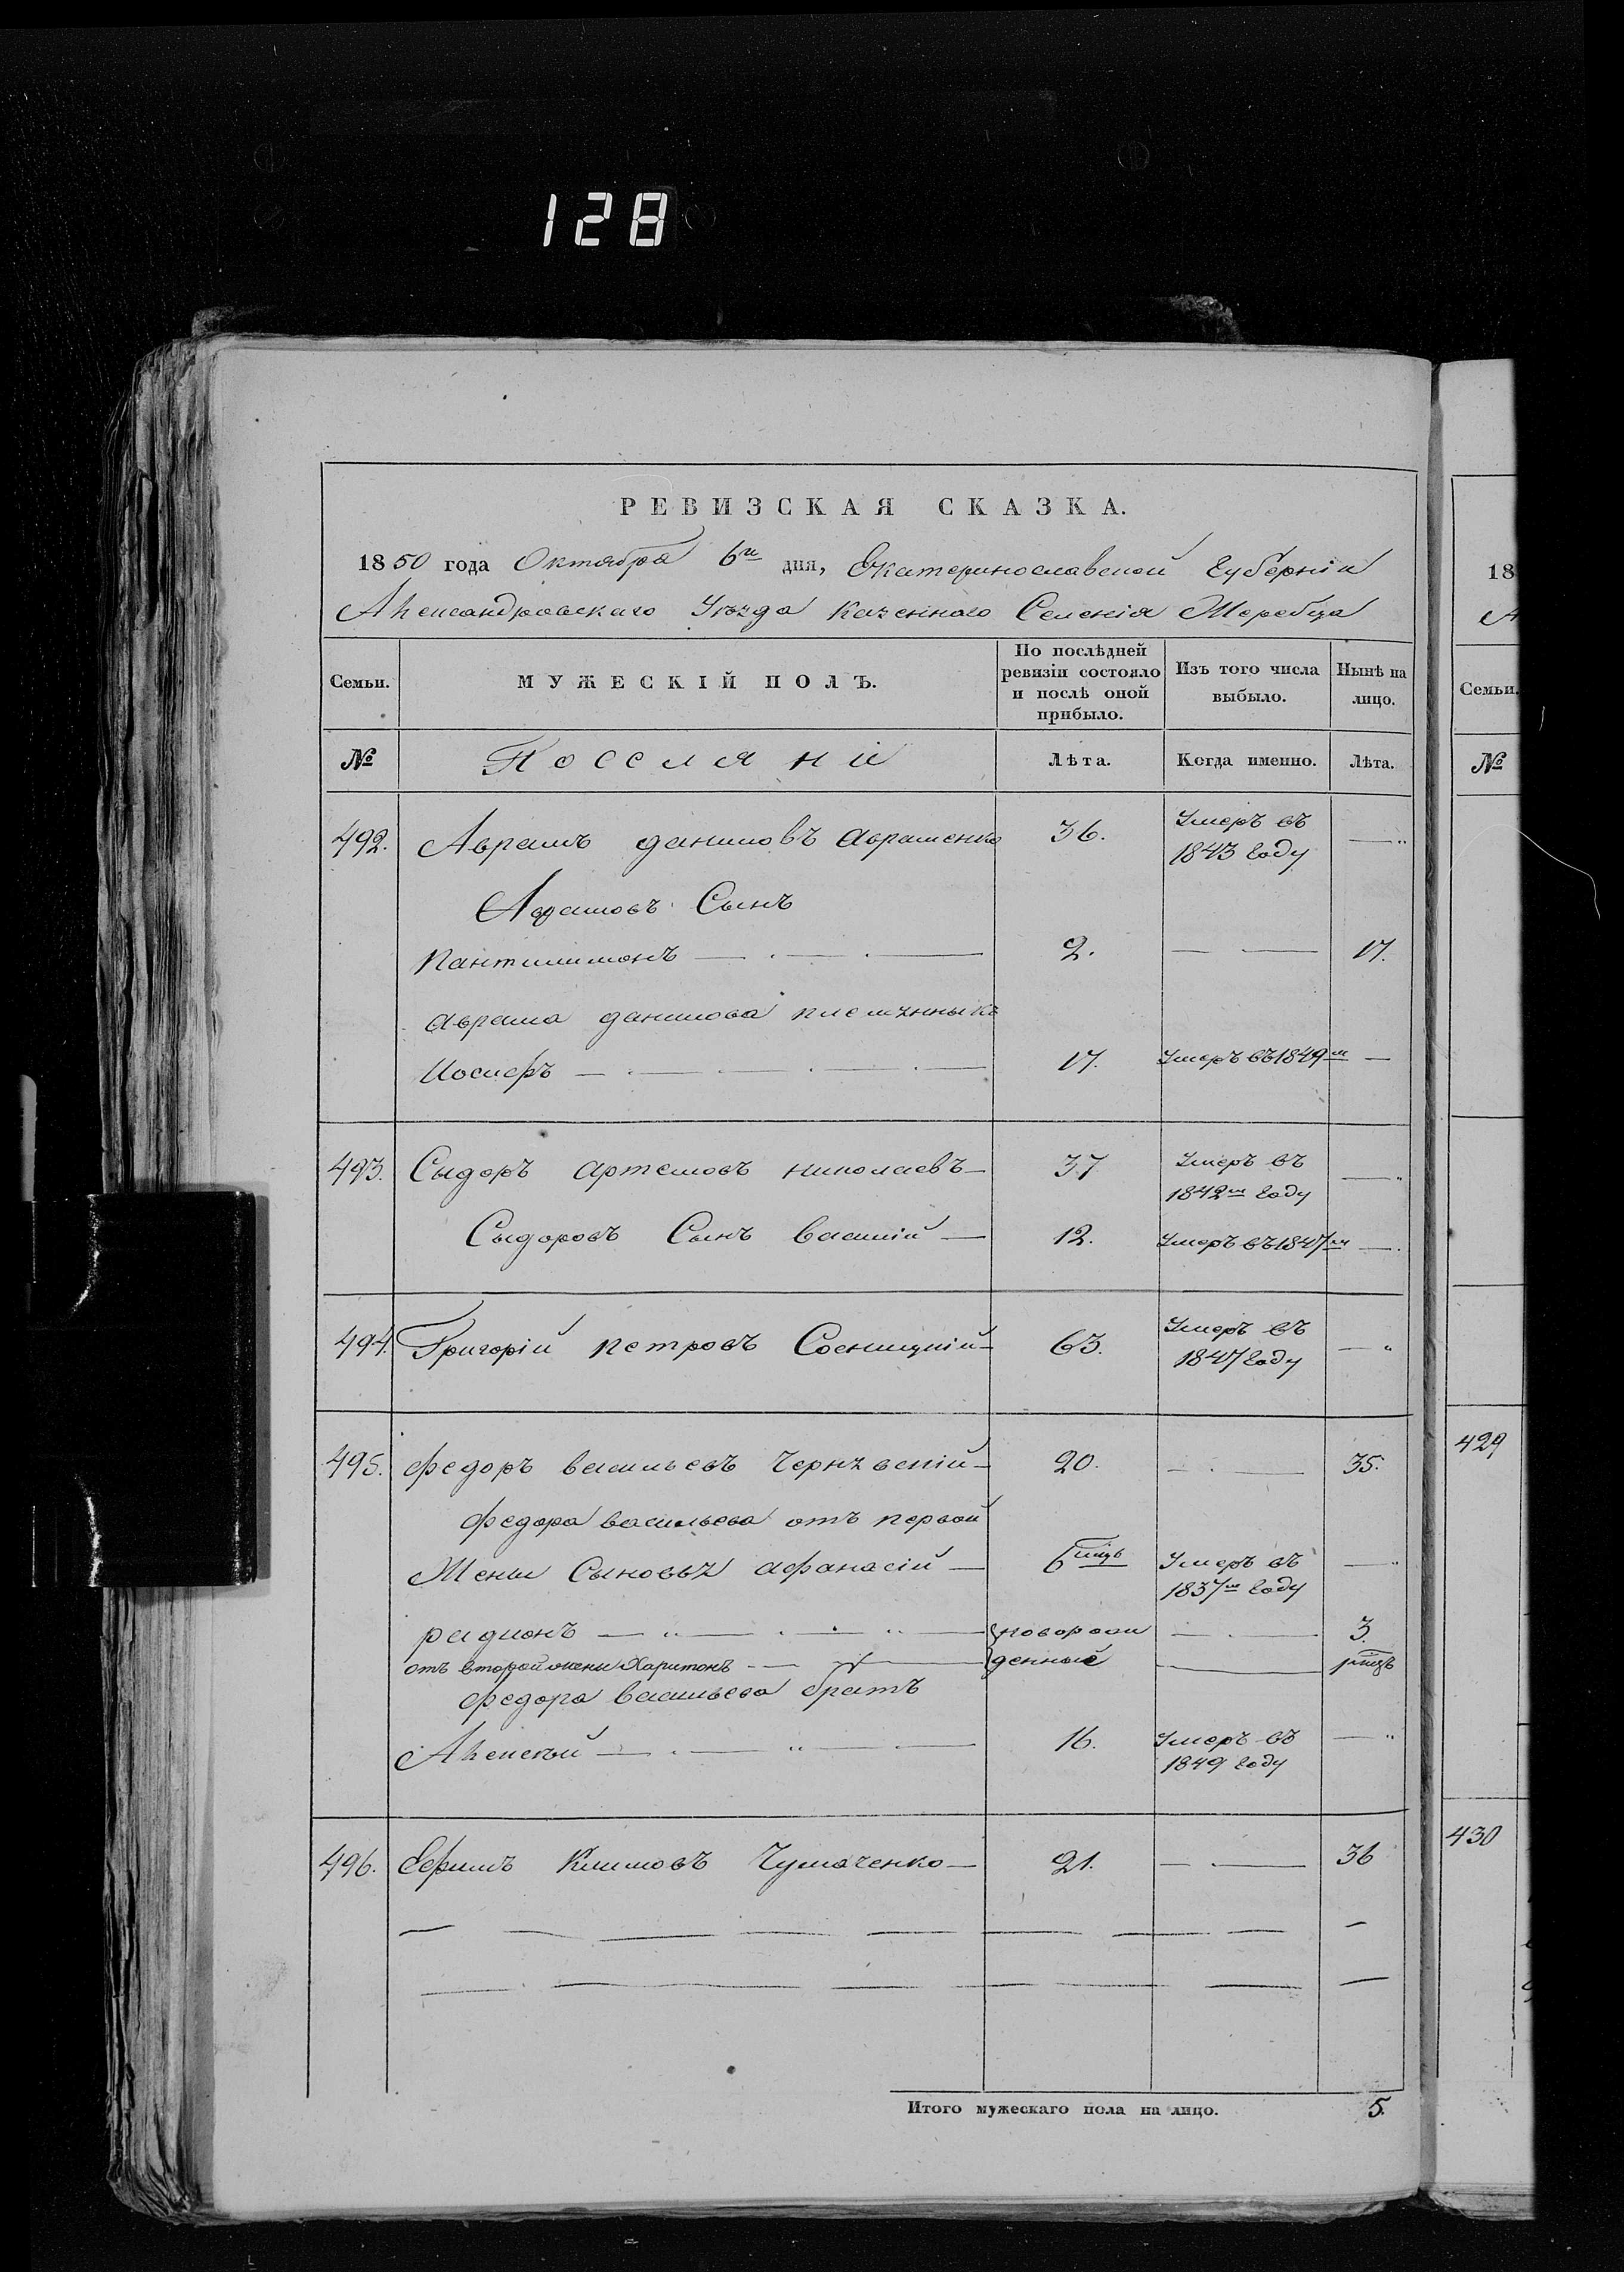 128
РЕВИЗСКАЯ СКАЗКА.
1850 года Октября 6го дня, Екатеринославской Губерніи
Александровскаго Уѣзда Казеннаго Селенія Жеребца
Семьи.
МУЖЕСКІЙ ПОЛЪ.
По послѣдней ревизіи состояло и послѣ оной прибыло.
Изъ того числа выбыло.
Нынѣ на лицо.
№
Поселяни
Лѣта.
Когда именно.
Лѣта.
492. Аврамъ даниловъ Авраменко 36. Умеръ въ 1843 году
Аврамовъ Сынъ
Пантилимонъ 2. 17.
Аврама данилова племзнныкъ
Иосифъ 17. Умеръ въ 1849м
493. Сыдоръ Артемовъ николаевъ 37 Умеръ въ 1842м году
Сыдоровъ Сынъ василій 12. Умеръ въ 1847м
494. Григорій петровъ Сосницкій 63. Умеръ въ 1847 году
495. Федоръ васильевъ 20. 35.
Федора васильева отъ первой
Жены Сыновъя Афанасій 6 мцъ Умеръ въ 1837м году
радионъ новорож 3.
отъ второй жены Харитонъ денные мцъ
Федора васильева братъ
Алексѣй 16. Умеръ въ 1849 году
496. Ефимъ Климовъ Чумаченко 21. 36
Итого мужескаго пола на лицо. 5.
18
А
Семьи.
№
429
430